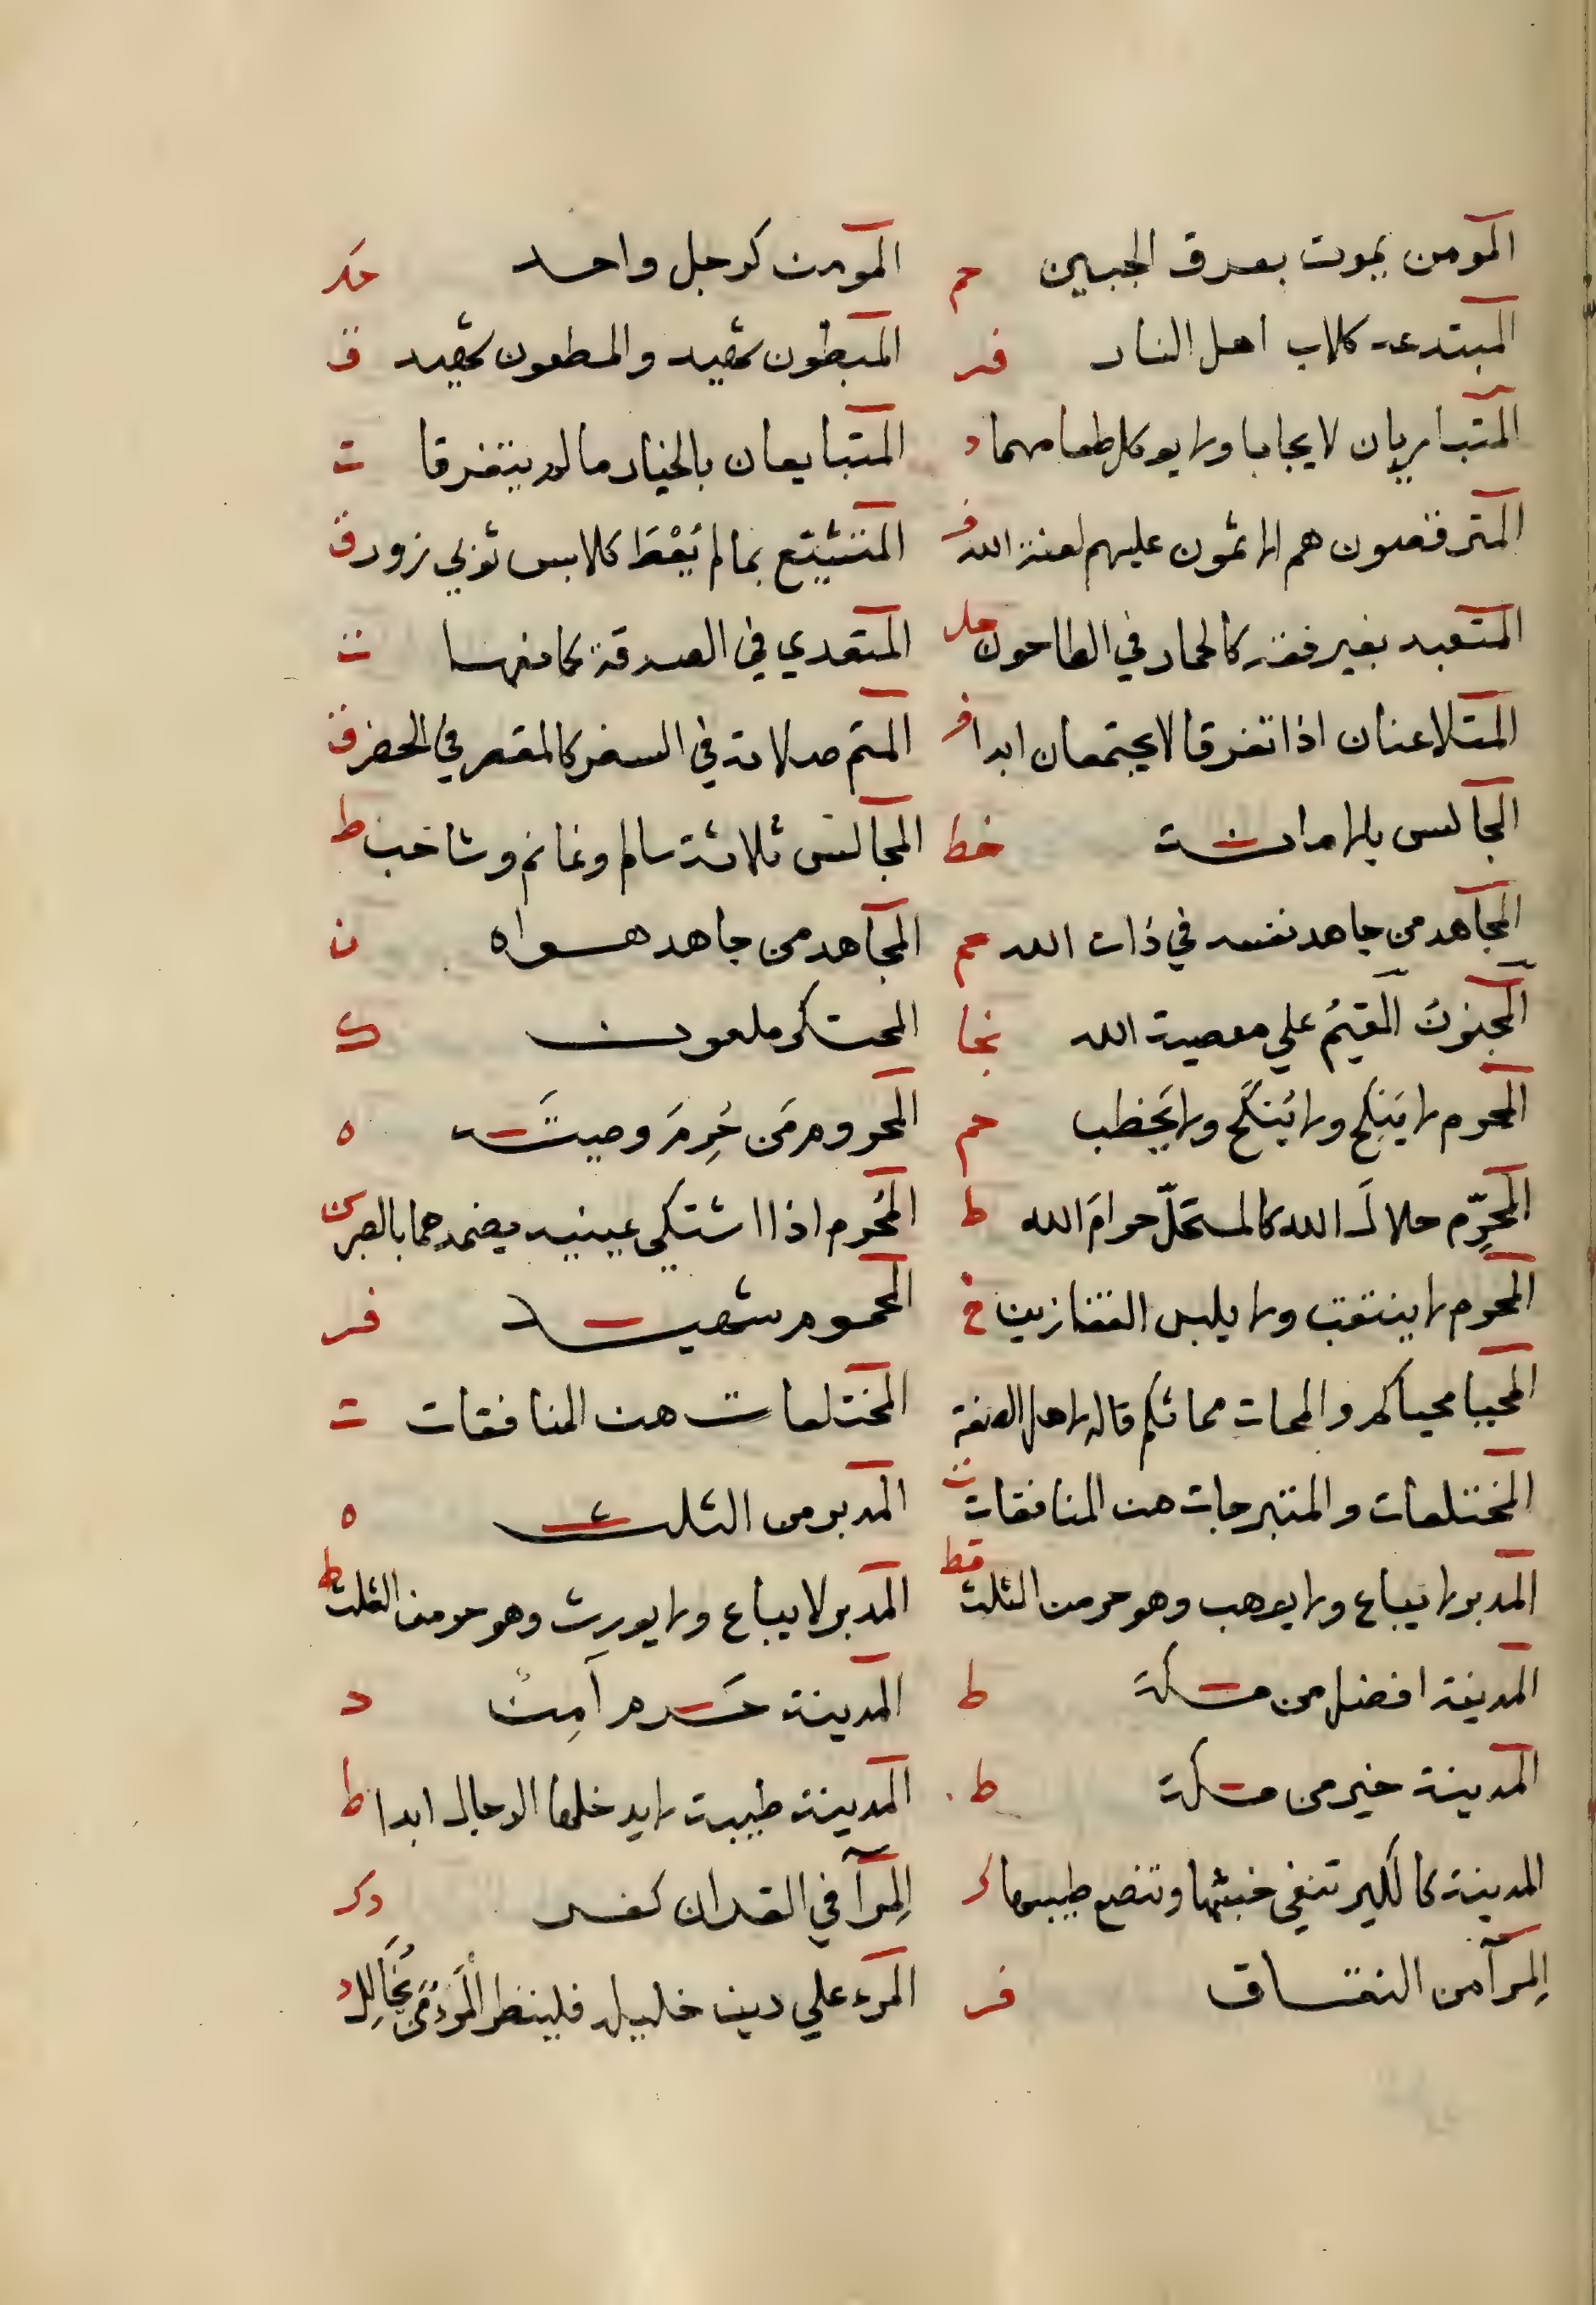 المومن يموت بعرق الجبين حم المومن كرجل واحد حل
المبتدعة كلاب اهل النار قر المبطون شهيد والمطعون شهيد ق
المتباريان لا يجابا ولا يوكل طعامهما د المتبايعان بالخيار مالم يتفرقا ت
المترفعون هم الاثمون عليهم لعنة الله فر المتشبع بما لم يُعْطَ كلابس ثوبي زور ق
المتعبد بغير فقه كالحمار في الطاحون حل المتعدي في الصدقة كمانعها ت
المتلاعنان اذا تفرقا لا يجتمعان ابدا المتم صلاته في السفر كالمقصر في الحضر
المجالس بالامانة خط المجالس ثلاثة سالم وغانم وشاجب ط
المجاهد من جاهد نفسه في ذات الله حم المجاهد من جاهد هواه ن
المجنونُ المقيمُ علي معصية الله نجا المحتكر ملعون ك
المحرم لا يَنكِح ولا يُنكَح ولا يَخطب حم المحروم مَن حُرِمَ وصيتَه ه
المحرِّم حلالَ الله كالمستحلّ حرامَ الله ط المُحرم اذا اشتكي عينيه يضمدهما بالصبر
المحرم لا ينتقب ولا يلبس القفازين خ المحموم شهيد فر
المحيا محياكم والممات مماتكم قاله لاهل الصفة المختلعات هن المنافقات ت
المختلعات والمتبرجات هن المنافقات المدبر من الثلث ه
المدبر لا يباع ولا يوهب وهو حر من الثلث قط المدبر لا يباع ولا يورث وهو حر من الثلث ط
المدينة افضل من مكة ط المدينة حَرم آمِن د
المدينة خير من مكة ط المدينة طيبة لا يدخلها الدجال ابدا ط
المدينة كالكير تنفي خبثها وتنصع طيبها المِرآ في القران كفر دك
المِرآ من النفاق فر المرء علي دين خليله فلينظر المرءُ مَن يُخَالِل د